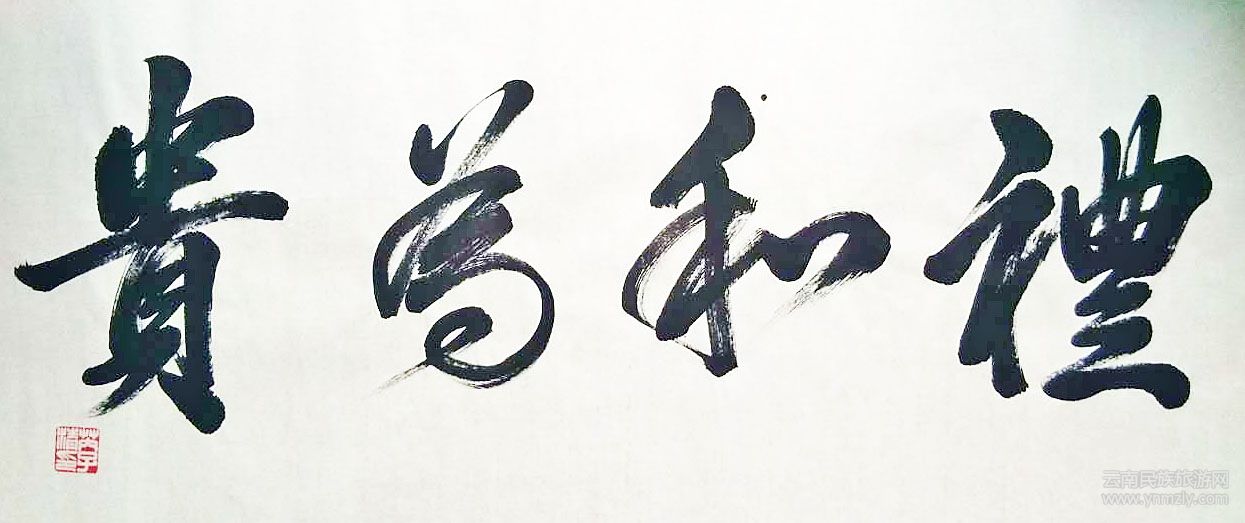 禮和為貴
云南民族旅游网
www.ynmzly.com